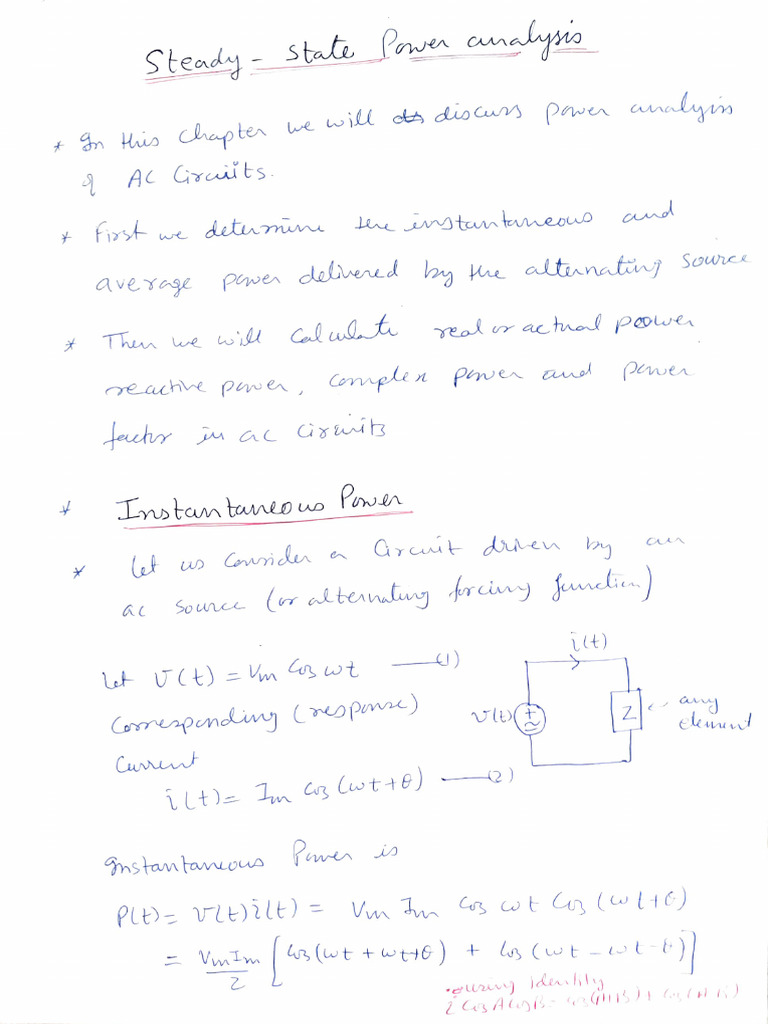 Steady - state Power analysis
* In this chapter we will discuss power analysis
of AC Circuits.
* First we determine the instantaneous and
average power delivered by the alternating source
* Then we will calculate real or actual power
reactive power, complex power and power
factor in ac circuits
* Instantaneous Power
* Let us consider a circuit driven by an
ac source (or alternating forcing function)
Let v(t) = Vm Cos ωt —(1)
Corresponding (response)
current
i(t) = Im Cos (ωt+θ) —(2)
i(t)
v(t)
+
~
Z
any
element
Instantaneous Power is
P(t) = v(t) i(t) = Vm Im Cos ωt Cos (ωt+θ)
= VmIm/2 [Cos (ωt + ωt+θ) + Cos (ωt - ωt - θ)]
using identity
2 CosA CosB = Cos(A+B) + Cos(A-B)